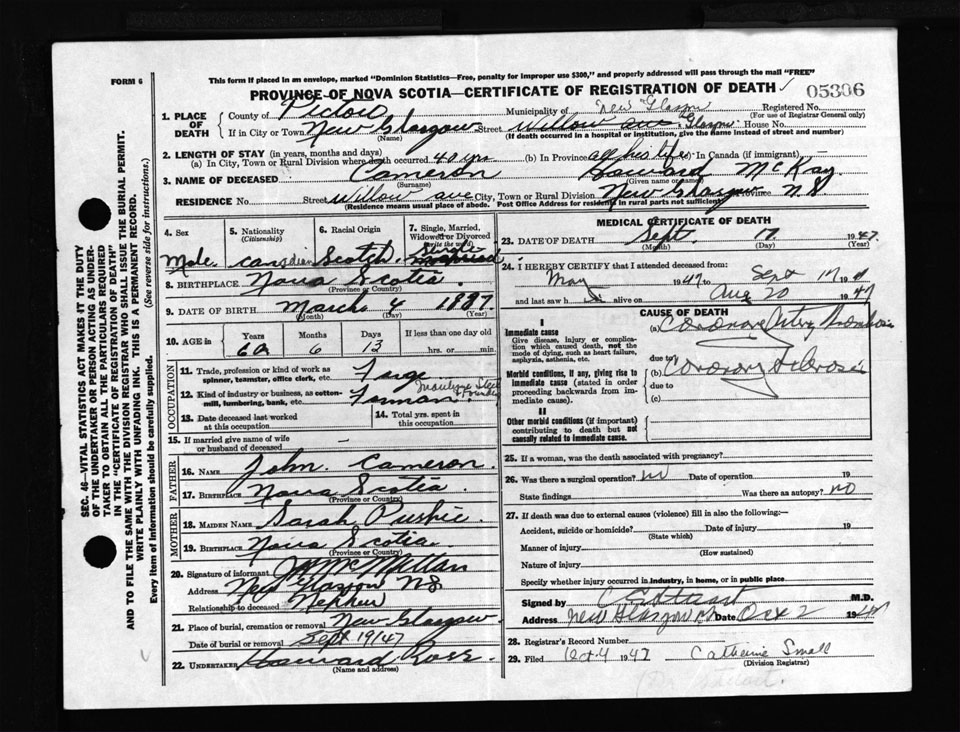 FORM 6
This form if placed in an envelope, marked "Dominion Statistics—Free, penalty for improper use $300," and properly addressed will pass through the mail "FREE"
PROVINCE OF NOVA SCOTIA—CERTIFICATE OF REGISTRATION OF DEATH
05306
1. PLACE OF DEATH
County of Pictou Municipality of New Glasgow Registered No.
(For use of Registrar General only)
If in City or Town New Glasgow Street Willow ave Glasgow House No.
(Name) (If death occurred in a hospital or institution, give the name instead of street and number)
2. LENGTH OF STAY (in years, months and days)
(a) In City, Town or Rural Division where death occurred 40 yrs (b) In Province all his life (c) In Canada (if immigrant)
3. NAME OF DECEASED Cameron Howard McKay
(Surname) (Given name or names)
RESIDENCE No. Street Willow ave City, Town or Rural Division New Glasgow Province NS
(Residence means usual place of abode. Post Office Address for residents in rural parts not sufficient)
4. Sex
Male
5. Nationality
(Citizenship)
Canadian
6. Racial Origin
Scotch
7. Single, Married, Widowed or Divorced
(write the word)
Single
8. BIRTHPLACE Nova Scotia
(Province or Country)
9. DATE OF BIRTH March 4 1887
(Month) (Day) (Year)
10. AGE in
Years Months Days If less than one day old
60 6 13 hrs. or min.
OCCUPATION
11. Trade, profession or kind of work as spinner, teamster, office clerk, etc. Forge
12. Kind of industry or business, as cotton-mill, lumbering, bank, etc. Forman
13. Date deceased last worked at this occupation
14. Total yrs. spent in this occupation
15. If married give name of wife or husband of deceased –
FATHER
16. NAME John Cameron
17. BIRTHPLACE Nova Scotia
(Province or Country)
MOTHER
18. MAIDEN NAME Sarah
19. BIRTHPLACE Nova Scotia
(Province or Country)
20. Signature of informant McMillan
Address New Glasgow NS
Relationship to deceased Nephew
21. Place of burial, cremation or removal New Glasgow
Date of burial or removal Sept 19/47
22. UNDERTAKER Howard Ross
(Name and address)
MEDICAL CERTIFICATE OF DEATH
23. DATE OF DEATH Sept 17 1947
(Month) (Day) (Year)
24. I HEREBY CERTIFY that I attended deceased from:
May 1947 to Sept 17 19
and last saw h alive on Aug 20 1947
CAUSE OF DEATH
I
Immediate cause
Give disease, injury or complication which caused death, not the mode of dying, such as heart failure, asphyxia, asthenia, etc.
(a) Coronary Artery Thrombosis
due to
Morbid conditions, if any, giving rise to immediate cause (stated in order proceeding backwards from immediate cause).
(b) Coronary Sclerosis
due to
(c)
II
Other morbid conditions (if important) contributing to death but not causally related to immediate cause.
25. If a woman, was the death associated with pregnancy?
26. Was there a surgical operation? no Date of operation 19
State findings Was there an autopsy? no
27. If death was due to external causes (violence) fill in also the following:—
Accident, suicide or homicide? Date of injury 19
(State which)
Manner of injury
(How sustained)
Nature of injury
Specify whether injury occurred in industry, in home, or in public place
Signed by M.D.
Address New Glasgow NS Date Oct 2 1947
28. Registrar's Record Number
29. Filed Oct 4 1947 Catherine Small
(Division Registrar)
SEC. 46—VITAL STATISTICS ACT MAKES IT THE DUTY
OF THE UNDERTAKER OR PERSON ACTING AS UNDER-
TAKER TO OBTAIN ALL THE PARTICULARS REQUIRED
IN THE "CERTIFICATE OF REGISTRATION OF DEATH"
AND TO FILE THE SAME WITH THE DIVISION REGISTRAR WHO SHALL ISSUE THE BURIAL PERMIT.
WRITE PLAINLY WITH UNFADING INK. THIS IS A PERMANENT RECORD.
(See reverse side for instructions.)
Every item of information should be carefully supplied.